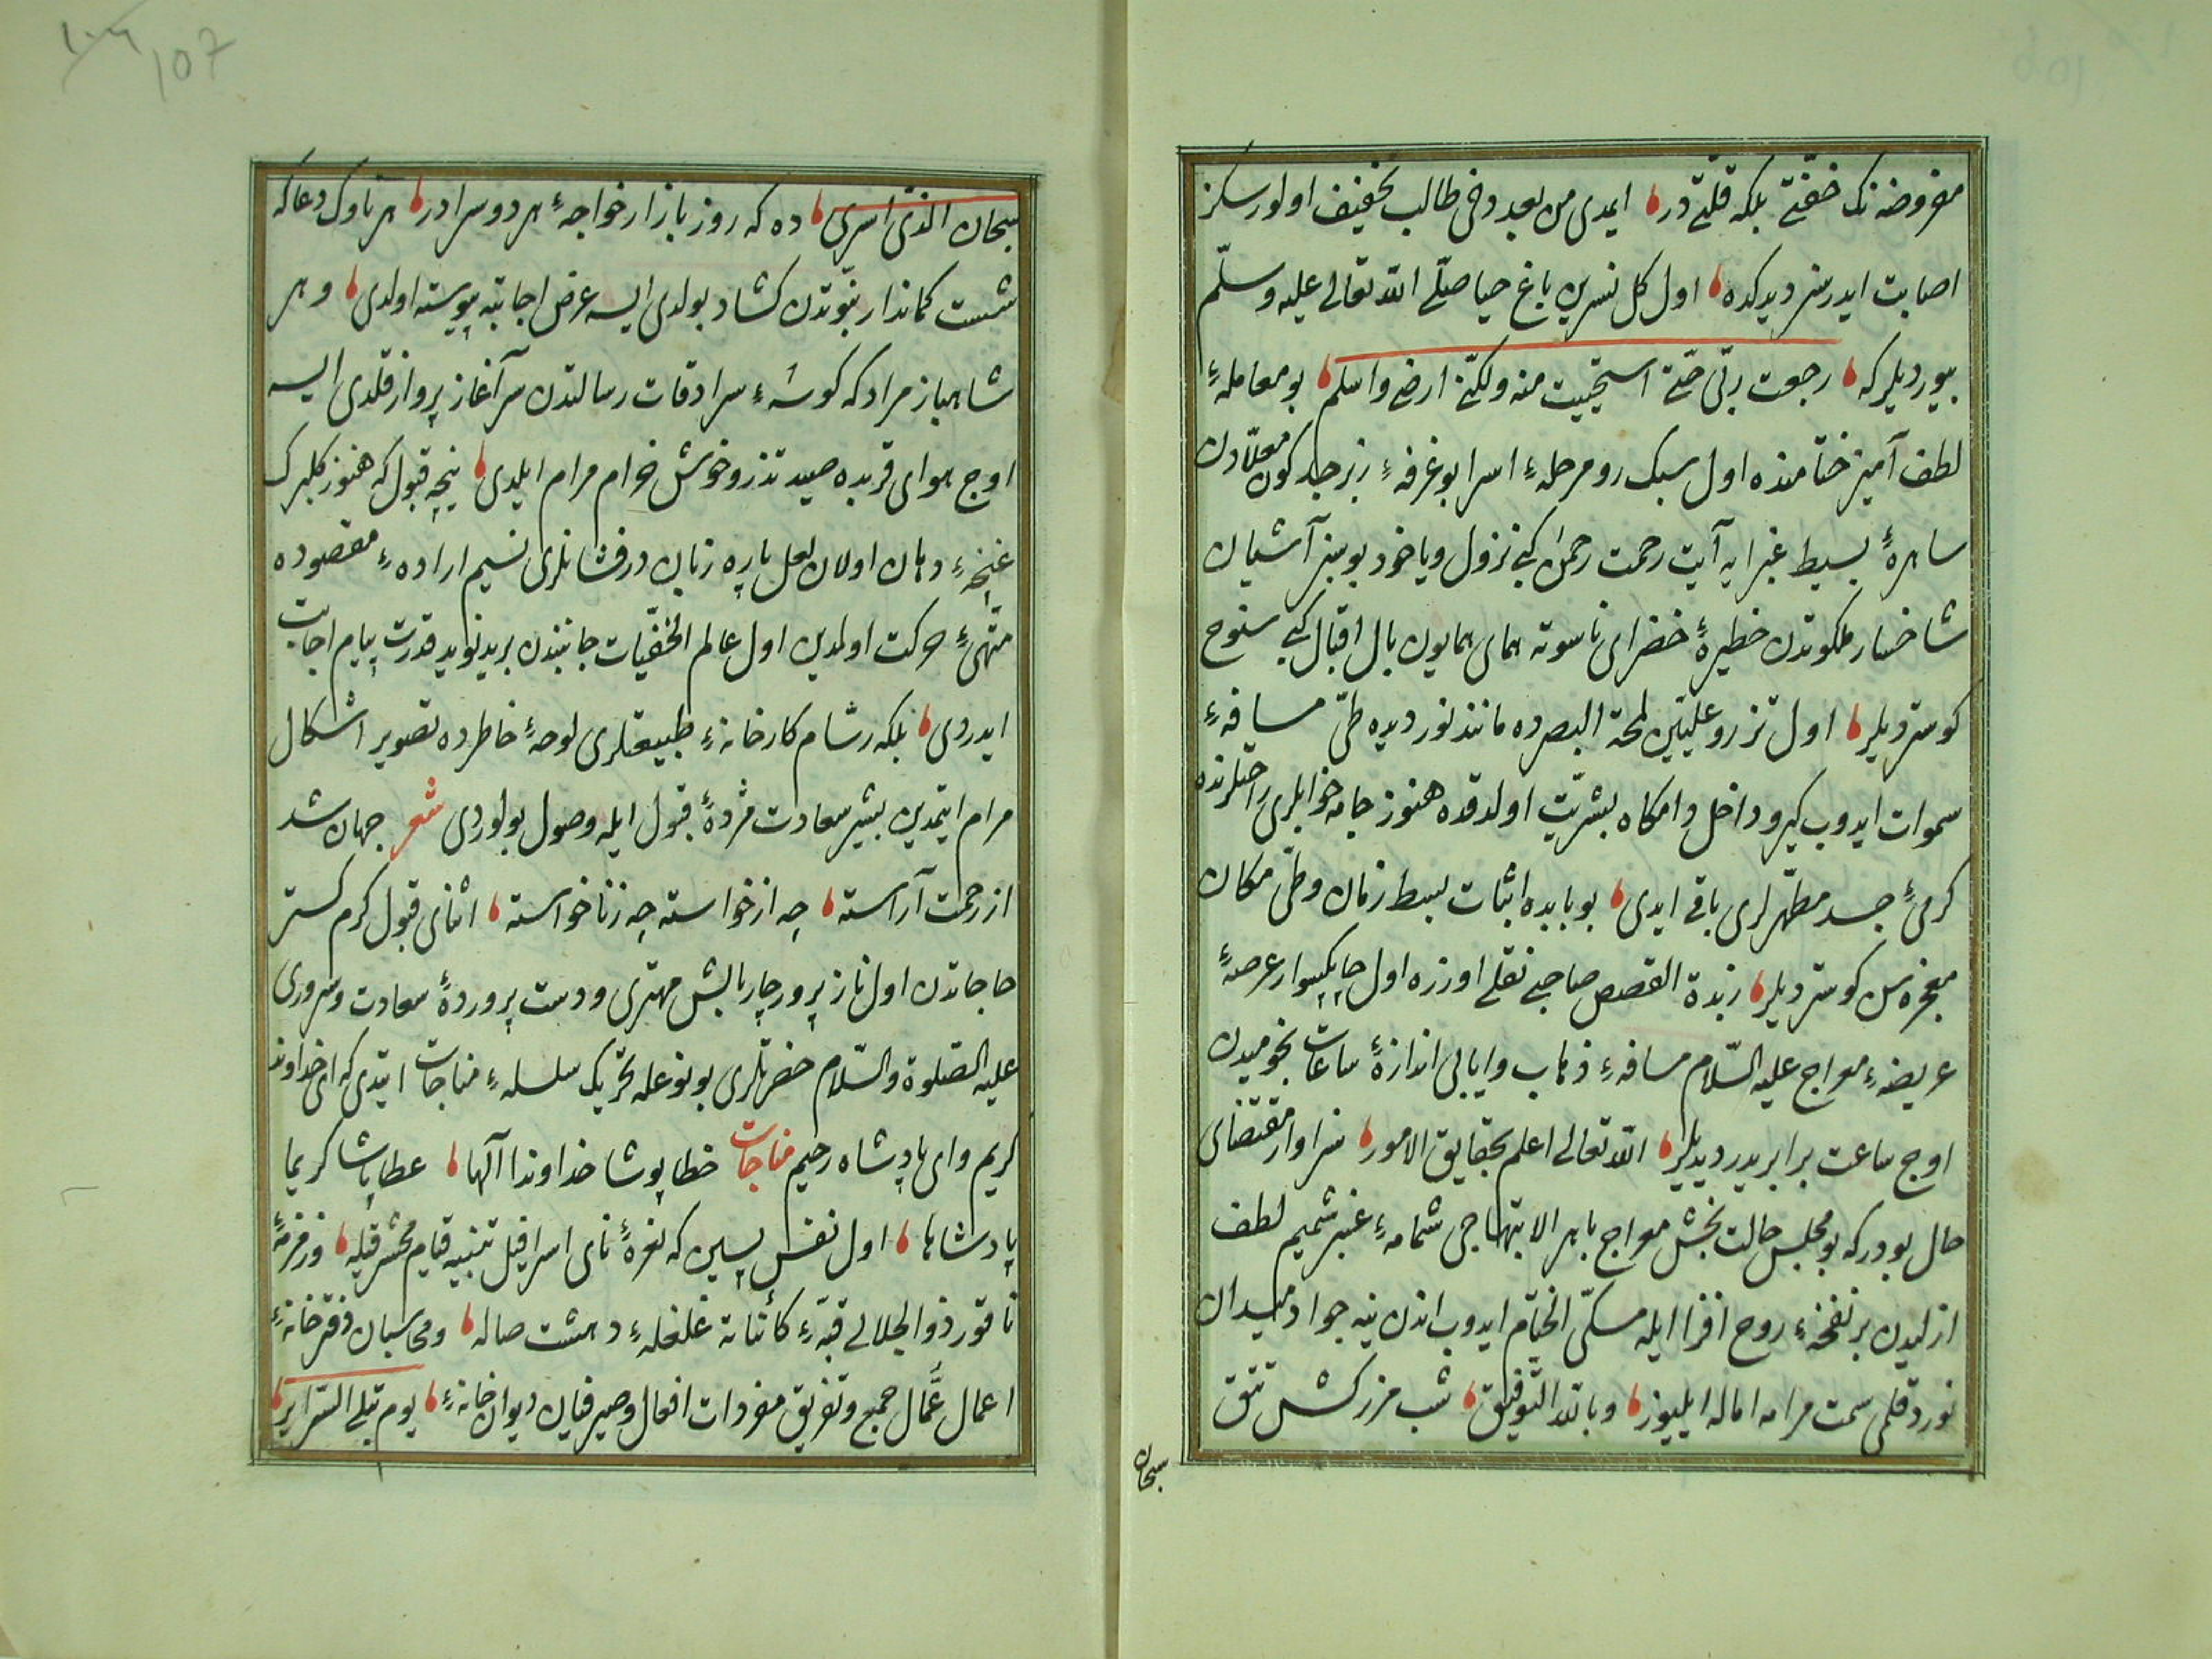 مفروضه نك خفّتی بلكه قلّتی در، ایمدی من بعد دخی طالب تخفیف اولورسكز
اصابت ایدرسز دیدكده، اول كل نسرین باغ حیا صلّی اللّه تعالی علیه وسلّم
بیوردیلر كه، رجعت ربّی حتّی استحییت منه ولكنّی ارضی واسلم، بو معاملهٔ
لطف آمیز ختامنده اول سبك رو مرحلهٔ اسرا بو غرفهٔ زبرجد كون معلّادن
ساهرهٔ بسیط غبرایه آیت رحمت رحمن كبی نزول ویا خود بو سبز آشیان
شاخسار ملكوتدن خطیرهٔ خضرای ناسوته همای همایون بال اقبال كبی سنوح
كوستردیلر، اول تزرو علیّین لمحة البصرده مانند نور دیده طیّ مسافهٔ
سموات ایدوب كیرو داخل دامكاه بشریّت اولدقده هنوز جامه خوابلری راحتلرنده
كرمیٔ جسد مطهّرلری باقی ایدی، بو بابده اثبات بسط زمان وطیّ مكان
معجزه سن كوستردیلر، زبدة القصص صاحبی نقلی اوزره اول چابكسوار عرصهٔ
عریضهٔ معراج علیه السّلام مسافهٔ ذهاب وایابی اندازهٔ ساعات نجومیدن
اوچ ساعت برابریدر دیدیلر، اللّه تعالی اعلم بحقایق الامور، سزاوار مقتضای
حال بودر كه بو مجلس حالت بخش معراج باهر الابتهاجی شمامهٔ عنبر شمیم لطف
ازلیدن بر نفخهٔ روح افزا ایله مسكیّ الختام ایدوب اندن ینه جواد میدان
نورد قلمی سمت مرامه اماله ایلیوز، وباللّه التّوفیق، شب مزركش تتق
سبحان
107
سبحان الذی اسری، ده كه روز بازار خواجهٔ هر دو سرادر، هر ناوك دعا كه
شست كماندار نبوّتدن كشاد بولدی ایسه عرض اجابته پیوسته اولدی، وهر
شاهباز مراد كه كوشهٔ سرادقات رسالتدن سرآغاز پرواز قلدی ایسه
اوج هوای قربده صید تذرو خوش خرام مرام ایلدی، نیجه قبول كه هنوز كلبرك
غنچهٔ دهان اولان لعل پاره زبان درفشانلری نسیم ارادهٔ مقصوده
متهیّیٔ حركت اولمدین اول عالم الخفیّات جانبندن برید نوید قدرت پیام اجابت
ایدردی، بلكه رسّام كارخانهٔ طبیعتلری لوحهٔ خاطرده تصویر اشكال
مرام ایتمدین بشیر سعادت مژدهٔ قبول ایله وصول بولوردی شعر جهان شد
از رحمت آراسته، چه از خواسته چه زناخواسته، اثنای قبول كرم كستر
حاجاتدن اول ناز پرور چار بالش مهتری ودست پروردهٔ سعادت وسروری
علیه الصّلوة والسّلام حضرتلری بو نوعله تحریك سلسلهٔ مناجات ایتدی كه ای خداوند
كریم وای پادشاه رحیم مناجات خطا پوشا خداوندا آلها، عطا پاشا كریما
پادشاها، اول نفس پسین كه نعرهٔ نای اسرافیل تنبیه قیام محشر قیله، وزمزمهٔ
ناقور ذو الجلالی قبّهٔ كائناته غلغلهٔ دهشت صاله، ومحاسبان دفتر خانهٔ
اعمال عمّال جمع وتفریق مفردات افعال وصیرفیان دیوان خانهٔ، یوم تبلی السّرایر،